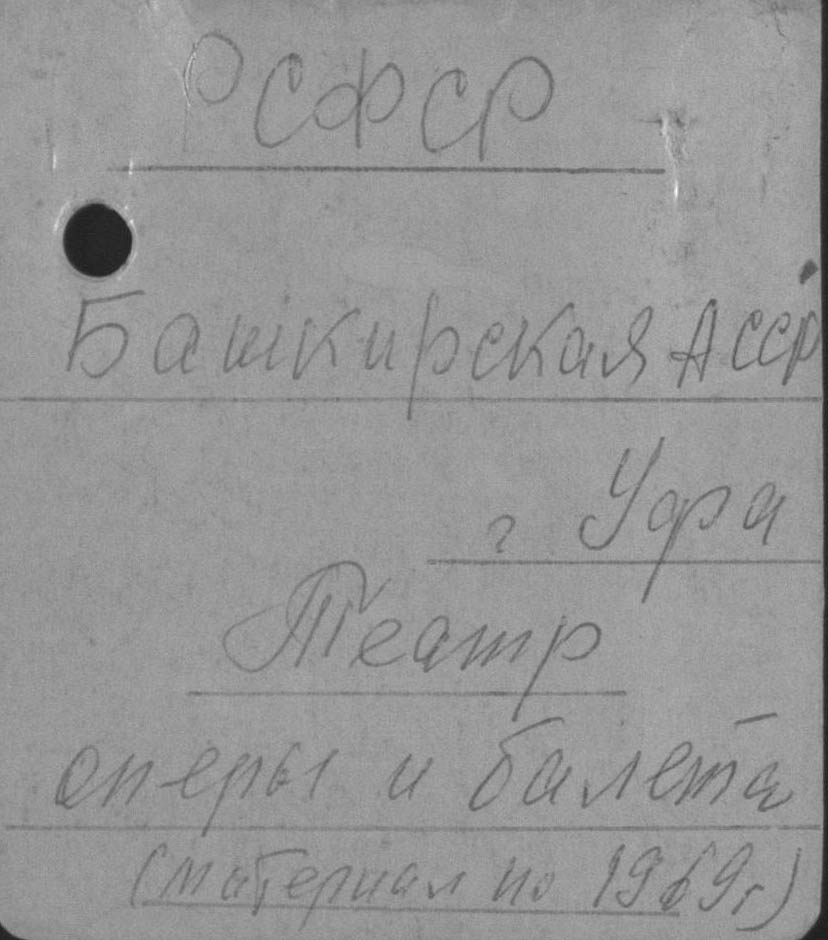 РСФСР
Башкирская АССР
г Уфа
Театр
оперы и балета
(материал по 1969г)